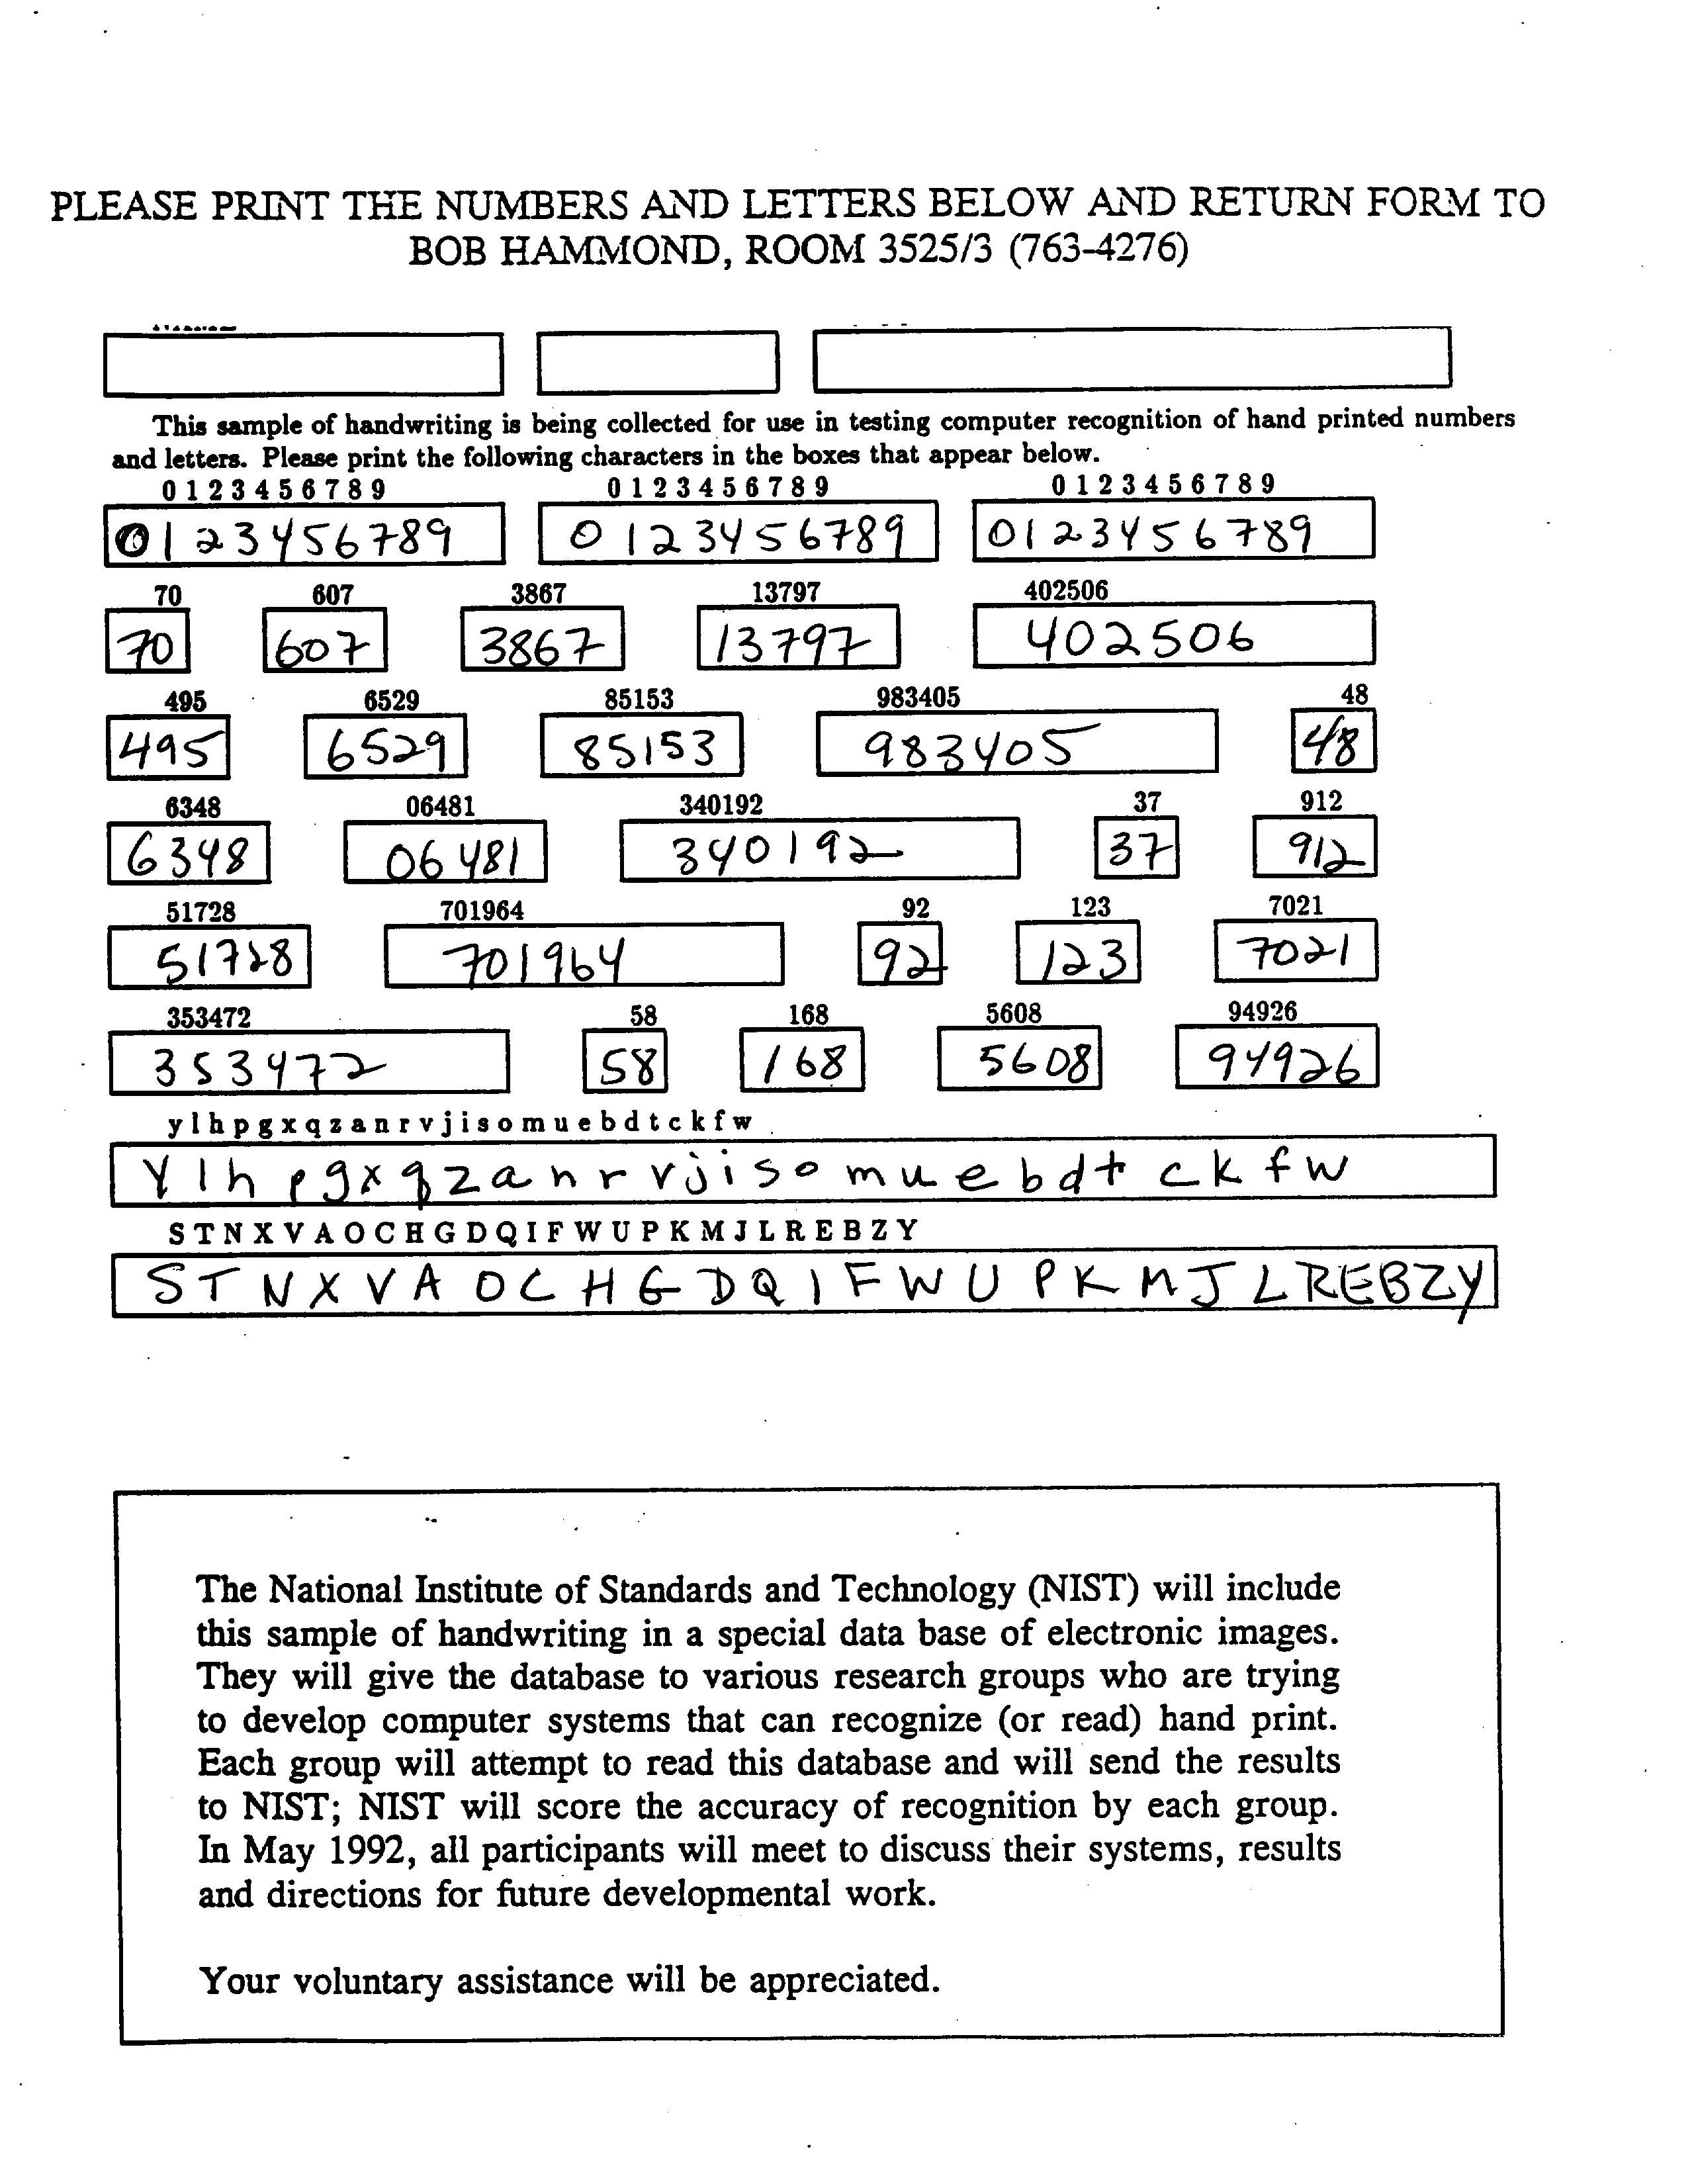 PLEASE PRINT THE NUMBERS AND LETTERS BELOW AND RETURN FORM TO
BOB HAMMOND, ROOM 3525/3 (763-4276)
This sample of handwriting is being collected for use in testing computer recognition of hand printed numbers
and letters. Please print the following characters in the boxes that appear below.
0 1 2 3 4 5 6 7 8 9 0 1 2 3 4 5 6 7 8 9 0 1 2 3 4 5 6 7 8 9
0123456789 0123456789 0123456789
70 607 3867 13797 402506
70 607 3867 13797 402506
495 6529 85153 983405 48
495 6529 85153 983405 48
6348 06481 340192 37 912
6348 06481 340192 37 912
51728 701964 92 123 7021
51728 701964 92 123 7021
353472 58 168 5608 94926
353472 58 168 5608 94926
y l h p g x q z a n r v j i s o m u e b d t c k f w
y l h p g x q z a n r v j i s o m u e b d t c k f w
S T N X V A O C H G D Q I F W U P K M J L R E B Z Y
S T N X V A O C H G D Q I F W U P K M J L R E B Z Y
The National Institute of Standards and Technology (NIST) will include
this sample of handwriting in a special data base of electronic images.
They will give the database to various research groups who are trying
to develop computer systems that can recognize (or read) hand print.
Each group will attempt to read this database and will send the results
to NIST; NIST will score the accuracy of recognition by each group.
In May 1992, all participants will meet to discuss their systems, results
and directions for future developmental work.
Your voluntary assistance will be appreciated.